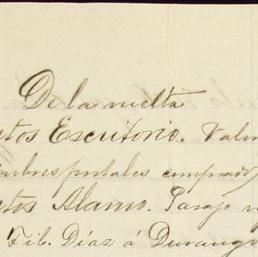 De la vuelta
tos Escritorio. Valo
timbres postales comprado
tos Alamo. Pasaje
Fib. Díaz á Durango